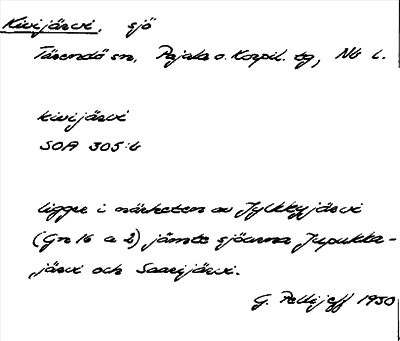 Kivijärvi, sjö
Tärendö sn, Pajala o. Korpil. tg, Nb l.
kivijärvi
SOA 305:6
ligger i närheten av Jylkkyjärvi
(Gn 16 a 2) jämte sjöarna Jupukka-
järvi och Saarijärvi.
G. Pellijeff 1950